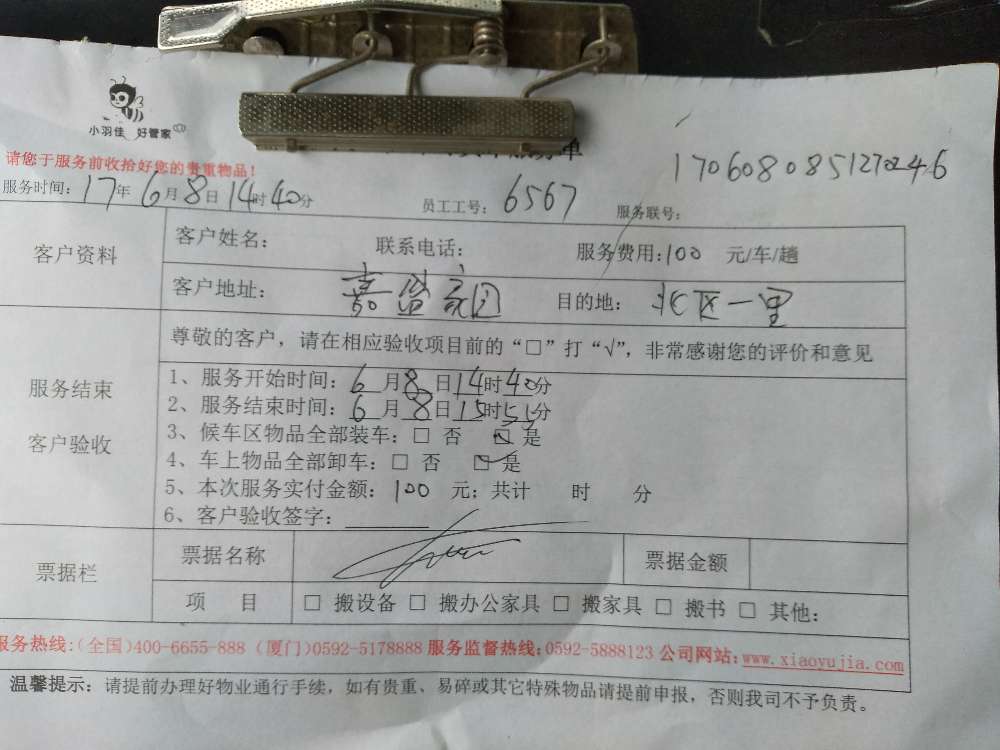 小羽佳 好管家
单
17060808512704246
请您于服务前收拾好您的贵重物品！
服务时间：17年6月8日14时40分 员工工号：6567 服务联号：
客户资料
客户姓名： 联系电话： 服务费用：100 元/车/趟
客户地址： 嘉盛家园 目的地： 北区一里
尊敬的客户，请在相应验收项目前的“□”打“√”，非常感谢您的评价和意见
服务结束
客户验收
1、服务开始时间：6月8日14时40分
2、服务结束时间：6月8日15时55分
3、候车区物品全部装车：□ 否 ☑ 是
4、车上物品全部卸车：□ 否 ☑ 是
5、本次服务实付金额：100 元；共计 时 分
6、客户验收签字：
票据栏
票据名称 票据金额
项 目 □ 搬设备 □ 搬办公家具 □ 搬家具 □ 搬书 □ 其他：
服务热线：（全国）400-6655-888（厦门）0592-5178888 服务监督热线：0592-5888123 公司网站：www.xiaoyujia.com
温馨提示：请提前办理好物业通行手续，如有贵重、易碎或其它特殊物品请提前申报，否则我司不予负责。